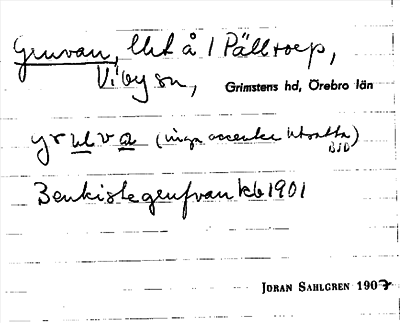 Gruvan, lht å 1 Pälltorp,
Viby sn, Grimstens hd, Örebro län
gruva (inga accenter utsatta)
Benkistegrufvan kb 1901
JORAN SAHLGREN 1907